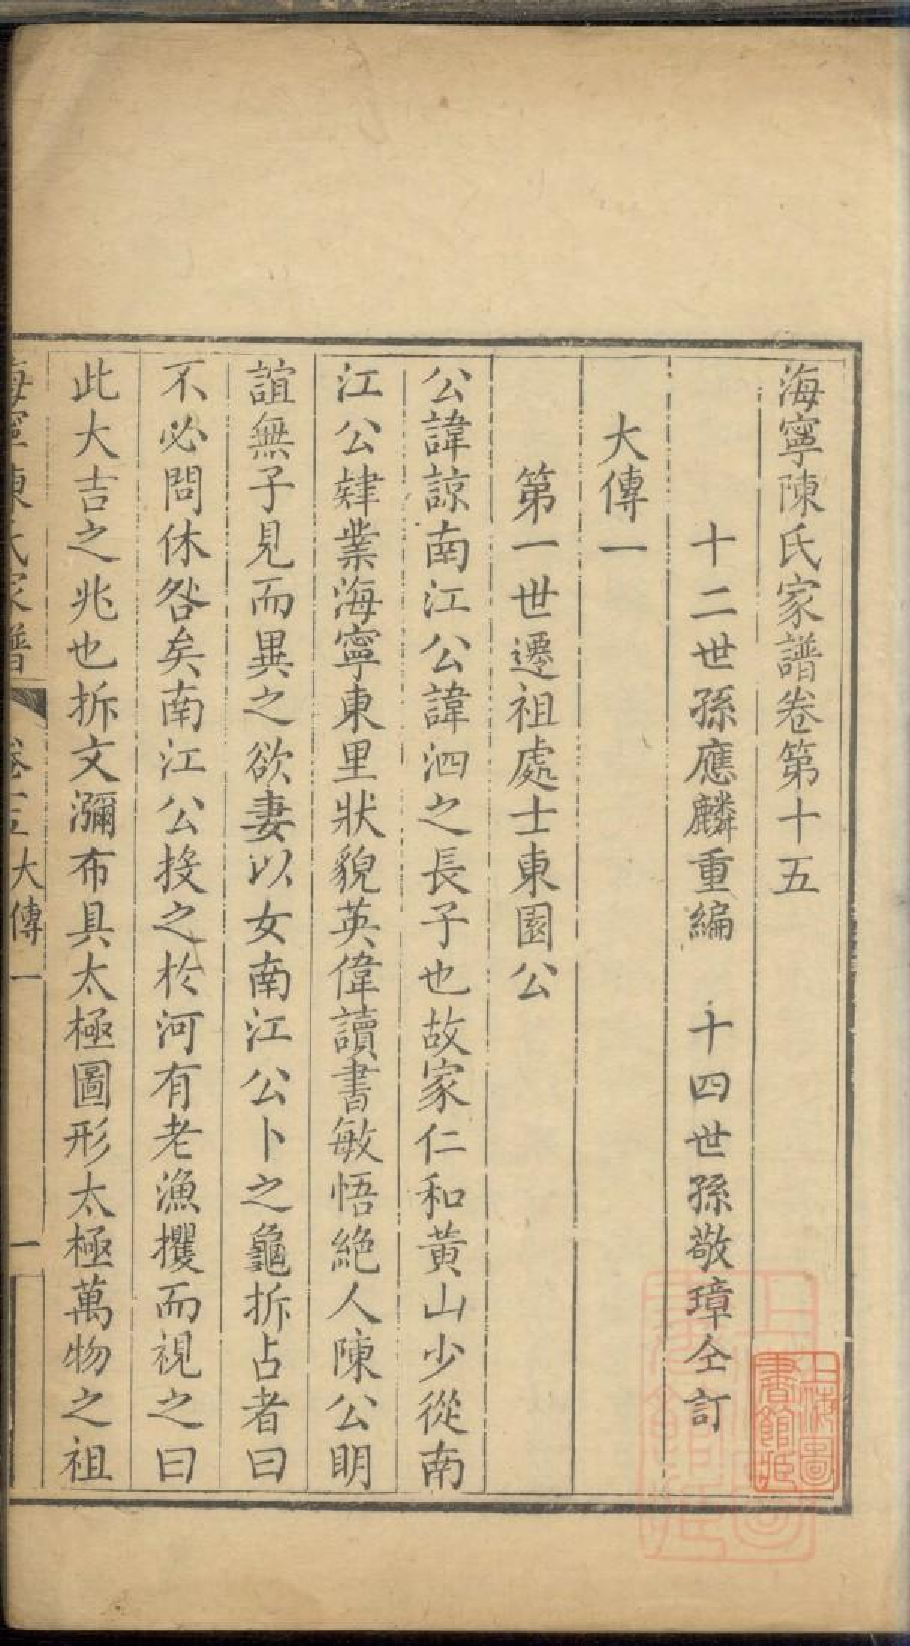 海寧陳氏家譜卷第十五
十二世孫應麟重編　十四世孫敬璋仝訂
大傳一
第一世遷祖處士東園公
公諱諒南江公諱泗之長子也故家仁和黃山少從南
江公肄業海寧東里狀貌英偉讀書敏悟絕人陳公明
誼無子見而異之欲妻以女南江公卜之龜拆占者曰
不必問休咎矣南江公投之於河有老漁攫而視之曰
此大吉之兆也拆文瀰布具太極圖形太極萬物之祖
海寧陳氏家譜　卷十五 大傳一　一
上海圖書館臧